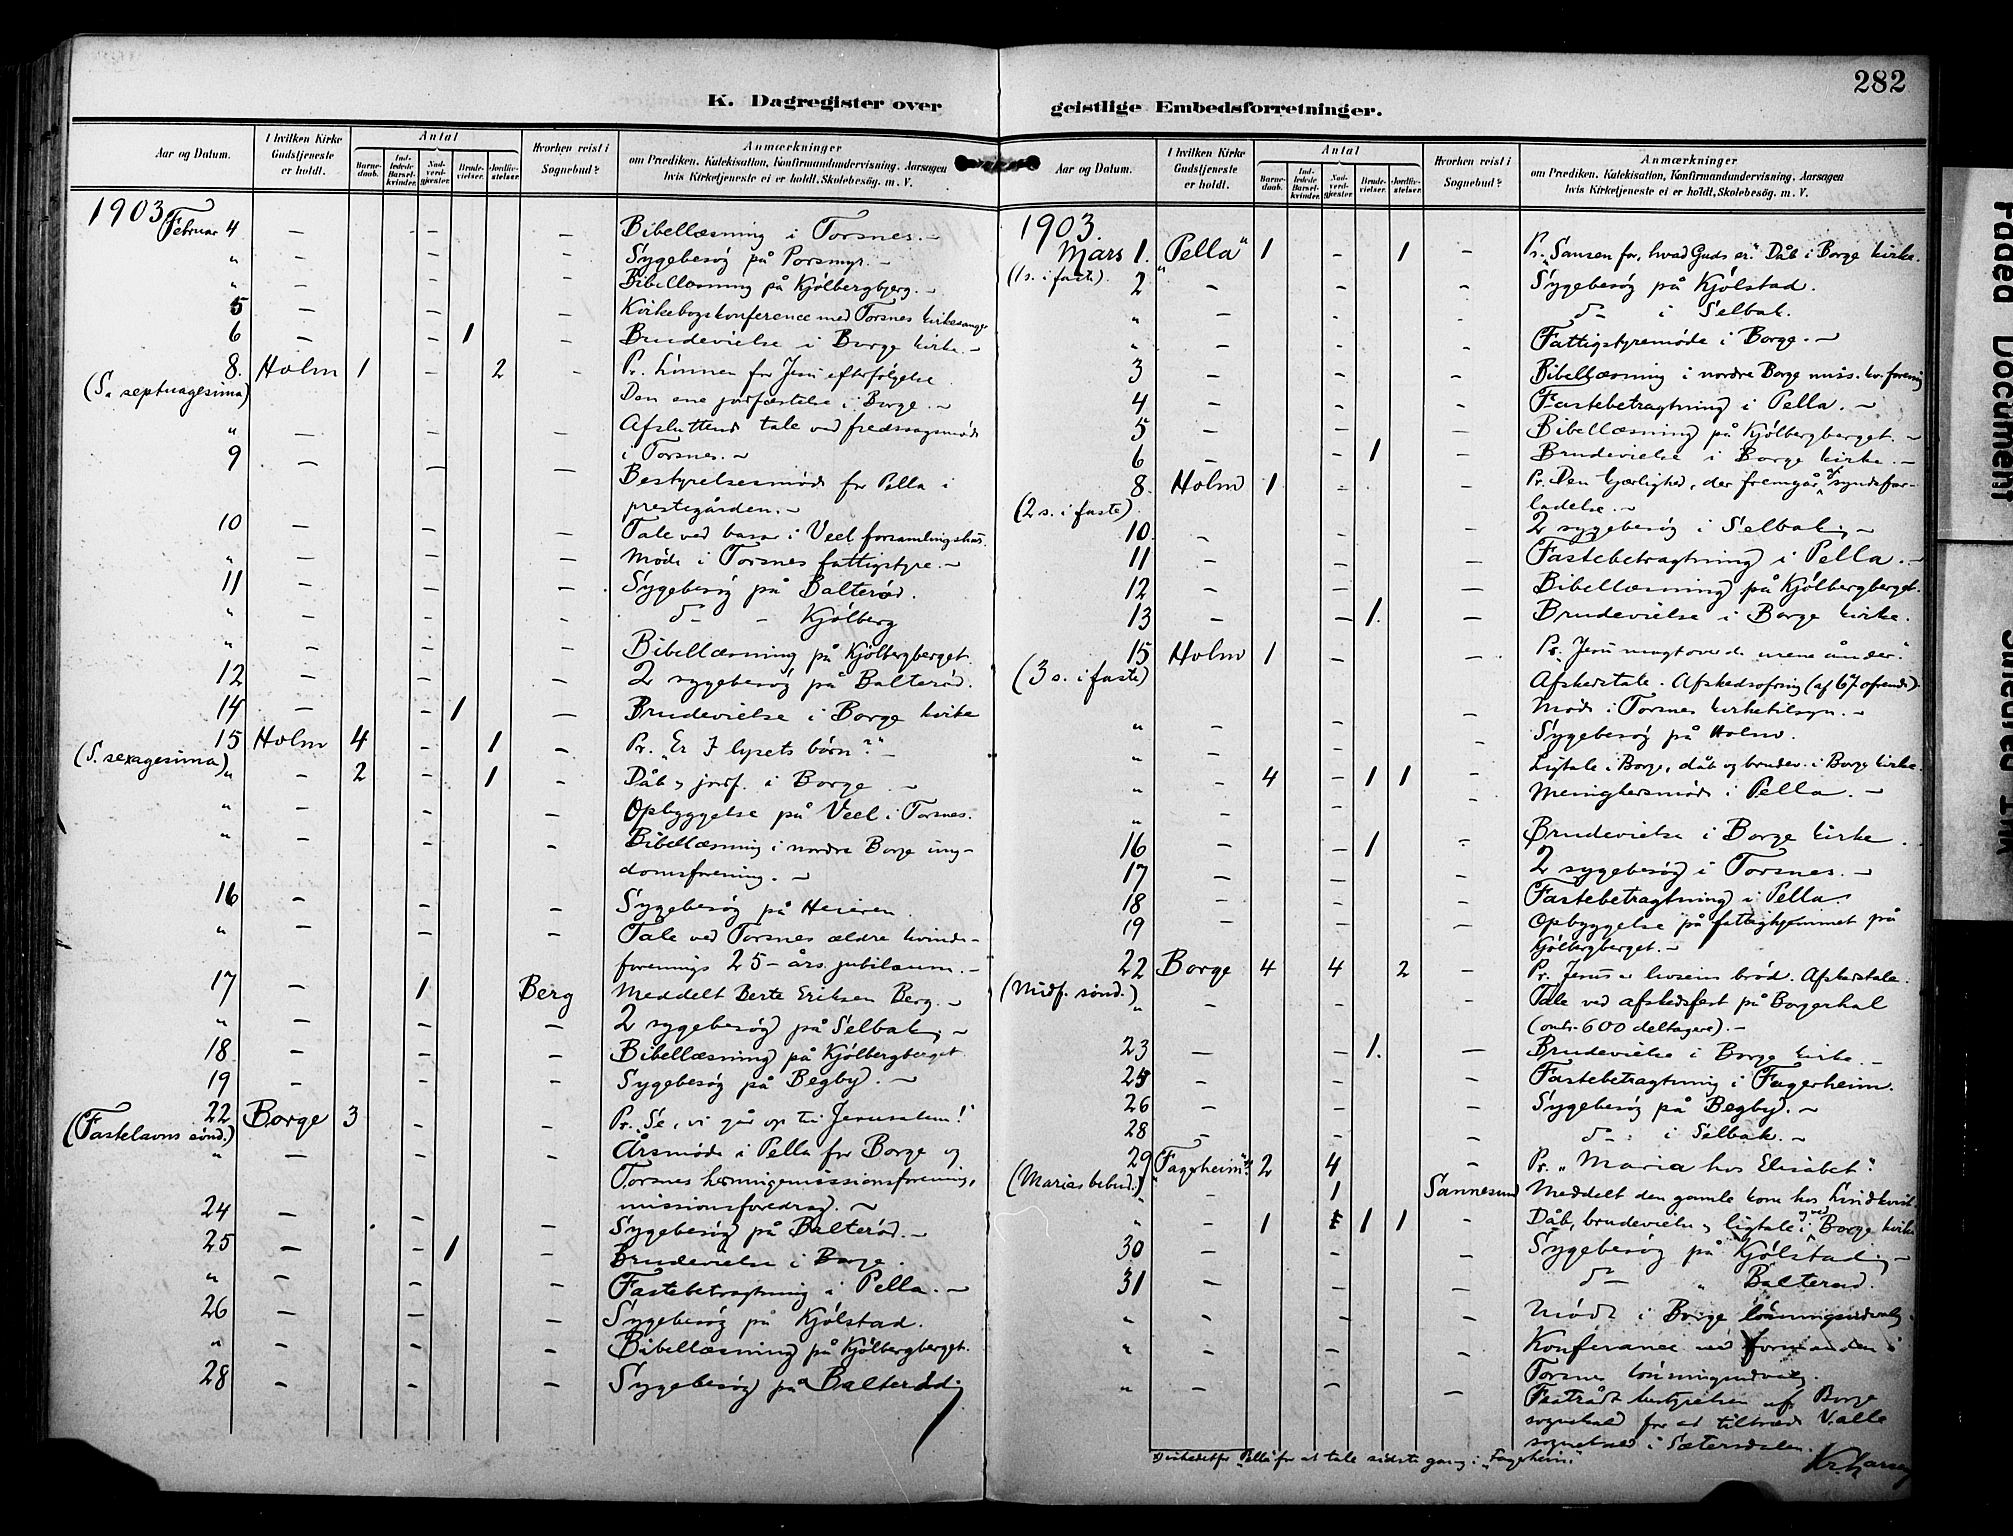 282
K. Dagregister over geistlige Embedsforretninger.
Aar og Datum.
I hvilken Kirke Gudstjeneste er holdt.
Antal
Barne-daab.
Ind-ledede Barsel-kvinder.
Nad-verd-gjester.
Brude-vielser.
Jordfæ-stelser.
Hvorhen reist i Sognebud?
Anmærkninger
om Prædiken, Katekisation, Konfirmandundervisning, Aarsagen
hvis Kirketjeneste ei er holdt, Skolebesøg. m. V.
1903 Februar 4 – – – Bibellæsning i Torsnes. –
" – – – Sygebesøg på Porsmyr. –
" – – – Bibellæsning på Kjølbergbjerg. –
5 – – – Kirkebogskonference med Torsnes kirkesanger
6 – – 1 – Brudevielse i Borge kirke. –
8. Holm 1 – 2 – Pr. Lønnen for Jesu efterfølgelse.
(S. septuagesima) Den ene jordfæstelse i Borge. –
" – – – Afsluttende tale ved fredssagsmøde
9 – – – i Torsnes. –
Bestyrelsesmøde for Pella i
prestegården. –
10 – – – Tale ved basar i Veel forsamlingshus.
" – – – Møde i Torsnes fattigstyre. –
11 – – – Sygebesøg på Balterød.
" – – – do – Kjølberg
" – – – Bibellæsning på Kjølbergberget.
12 – – – 2 sygebesøg på Balterød.
14 – – 1 – Brudevielse i Borge kirke
15 Holm 4 – 1 – Pr. "Er I lysets børn?" –
(S. sexagesima) " – 2 – 1 – Dåb og jordf. i Borge. –
" – – – Opbyggelse på Veel i Torsnes.
" – – – Bibellæsning i nordre Borge ung-
domsforening. –
16 – – – Sygebesøg på Heieren.
" – – – Tale ved Torsnes ældre kvinde-
forenings 25-års jubilæum. –
17 – 1 Berg Meddelt Berte Eriksen Berg. –
" – – – 2 sygebesøg på Selbak. –
18 – – – Bibellæsning på Kjølbergberget.
19 – – – Sygebesøg på Begby. –
22 Borge 3 – – Pr. "Se, vi går op til Jerusalem!"
(Fastelavns sønd.) " – – – Årsmøde i Pella for Borge og
Torsnes hedningemissionsforening,
missionsforedrag. –
24 – – – Sygebesøg på Balterød. –
25 – – 1 – Brudevielse i Borge.
" – – – Fastebetragtning i Pella. –
26 – – – Sygebesøg på Kjølstad.
" – – – Bibellæsning på Kjølbergberget.
28 – – – Sygebesøg på Balterød
Aar og Datum.
I hvilken Kirke Gudstjeneste er holdt.
Antal
Barne-daab.
Ind-ledede Barsel-kvinder.
Nad-verd-gjester.
Brude-vielser.
Jordfæ-stelser.
Hvorhen reist i Sognebud?
Anmærkninger
om Prædiken, Katekisation, Konfirmandundervisning, Aarsagen
hvis Kirketjeneste ei er holdt, Skolebesøg. m. V.
1903.
Mars 1. "Pella" 1 – 1 – Pr. "Sansen for, hvad Guds er." Dåb i Borge kirke.
(1 s. i faste). 2 – – – Sygebesøg på Kjølstad.
" – – do i Selbak.
" – – – Fattigstyremøde i Borge. –
3 – – – Bibellæsning i nordre Borge miss. kv. forening
4 – – – Fastebetragtning i Pella. –
5 – – – Bibellæsning på Kjølbergberget. –
6 – – 1 – Brudevielse i Borge kirke. –
8. Holm 1 – – Pr. Den kjærlighed, der fremgår af syndsfor-
(2 s. i faste). ladelse. –
10. – – – 2 sygebesøg i Selbak. –
11 – – – Fastebetragtning i Pella. –
12 – – – Bibellæsning på Kjølbergberget.
13 – – 1. – Brudevielse i Borge kirke.
15 Holm 1 – – Pr. "Jesu magt over de urene ånder."
(3 s. i faste) Afskedstale. Afskedsofring (af 67 ofrende).
" – – – Møde i Torsnes kirketilsyn. –
" – – – Sygebesøg på Holm.
" – 4 – 1 1 – Ligtale i Borge, dåb og brudev. i Borge kirke.
" – – – Menighedsmøde i Pella. –
16 – – 1 – Brudevielse i Borge kirke.
17 – – – 2 sygebesøg i Torsnes. –
18 – – – Fastebetragtning i Pella.
19 – – – Opbyggelse på fattighjemmet på
Kjølbergberget. –
22 Borge 4 4 2 – Pr. Jesus er livsens brød. Afskedstale.
(Midf. sønd.) " – – – Tale ved afskedsfest på Borgerhal
(omtr. 600 deltagere). –
23 – – 1. – Brudevielse i Borge kirke. –
25 – – – Fastebetragtning i Fagerheim.
26 – – – Sygebesøg på Begby. –
28 – – – do i Selbak. –
29 "Fagerheim" 2 4 – Pr. "Maria hos Elisabet".
(Marias bebud.) " – 1 Sannesund Meddelt den gamle kone hos Lindkvist
" – 1 1 1 – Dåb, brudevielse og ligtale i og ved Borge kirke
30 – – – Sygebesøg på Kjølstad –
31 – – – do " Balterød.
" – – – Møde i Borge lønningsudvalg.
" – – – Konferance med formanden i
Torsnes lønningsudvalg.
" – – – Fratrådt bestyrelsen af Borge
sognekald for at tiltræde Valle
sognekald i Sætersdalen.
Kr. Larsen
"Pella" for at tale sidste gang i "Fagerheim"
Faded Document